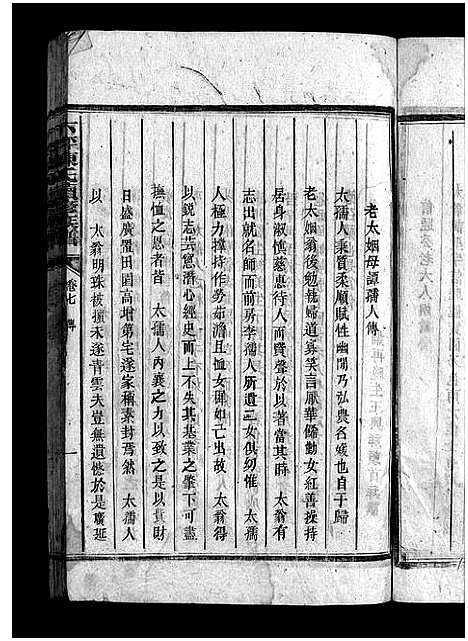 老太姻母譚孺人傳
太孺人秉質柔順賦性幽閒乃弘農名媛也自于歸
老太姻翁後勉執婦道寡笑言厭華餙勤女紅善操持
居身淑慎慈惠待人而賢聲於以著當其時　太翁有
志出就名師而前房李孺人所遺二女俱幼惟　太孺
人極力撐持作勞茹澹且恤女卹如己出故　太翁得
以銳志芸窓潛心經史而上不失其基業之肇下可盡
撫恤之恩者皆　太孺人內襄之力以致之是以貲財
日盛廣置田園高增第宅遂家稱素封焉然　太孺人
以　太翁明珠被擯未遂青雲夫豈無遺憾於是廣延
卷七　傳
一